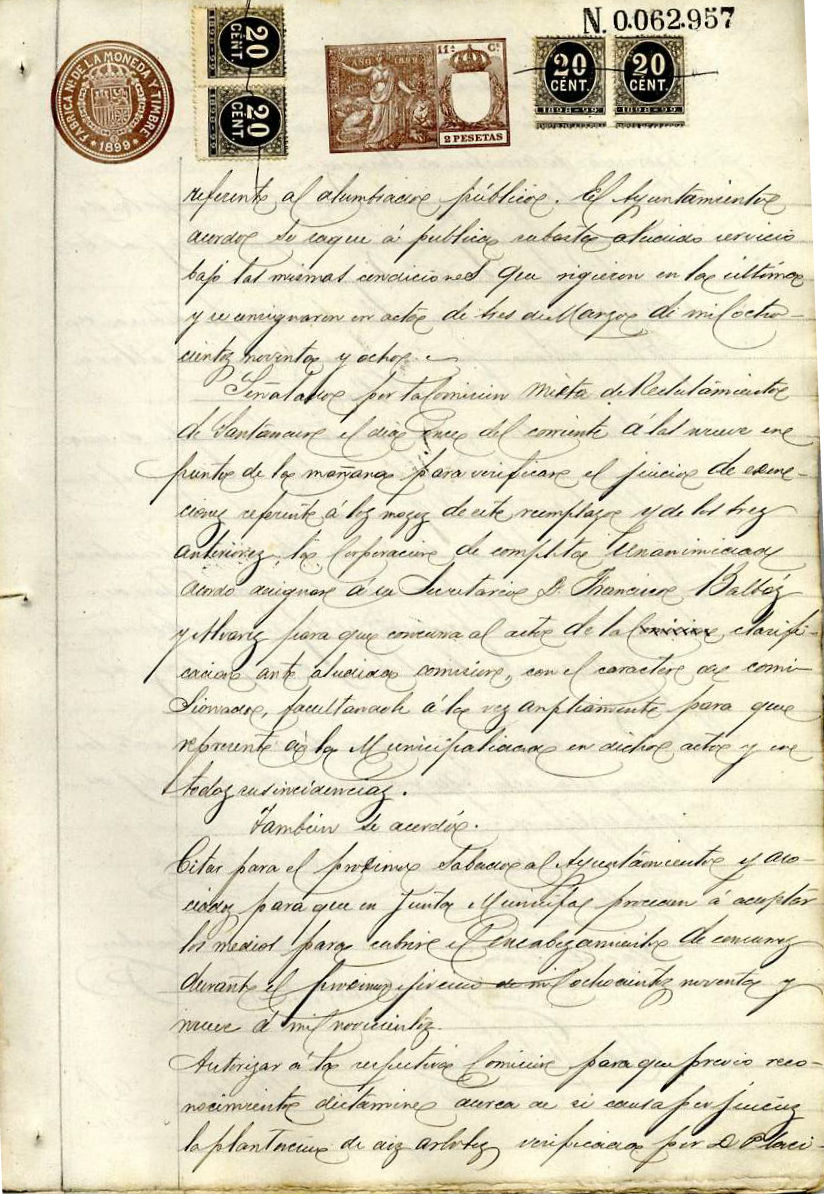 N. 0.062.957
FABRICA Nal. DE LA MONEDA Y TIMBRE
* 1899 *
20 CENT. 1898-99
20 CENT. 1898-99
AÑO 1899
11ª Cl
2 PESETAS
20 CENT. 1898-99
20 CENT. 1898-99
referente al alumbrado público. El Ayuntamiento
acordó se saque á publica subasta aludido servicio
bajo las mismas condiciones que rigieron en la última
y se consignaron en acta de tres de Marzo de mil ocho-
cientos noventa y ocho.
Señalado por la Comision Mixta de Reclutamiento
de Santander el dia once del corriente á las nueve en
punto de la mañana para verificar el juicio de exen-
ciones referente á los mozos de este reemplazo y de los tres
anteriores, la Corporacion de completa unanimidad
acordó designar á su Secretario D. Francisco Balbás
y Alvarez para que concurra al acto de la clasifi-
cacion ante aludida comision, con el caracter de comi-
sionado, facultandole á la vez ampliamente para que
represente á la Municipalidad en dicho acto y en
todas sus incidencias.
Tambien se acordó.
Citar para el proximo Sabado al Ayuntamiento y aso-
ciados para que en Junta Municipal procedan á aceptar
los medios para cubrir el Encabezamiento de consumos
durante el proximo ejercicio de mil ochocientos noventa y
nueve á mil novecientos.
Autorizar á la respectiva Comision para que previo reco-
nocimiento dictamine acerca de si causa perjuicios
la plantacion de diez arboles, verificada por D. Placi-